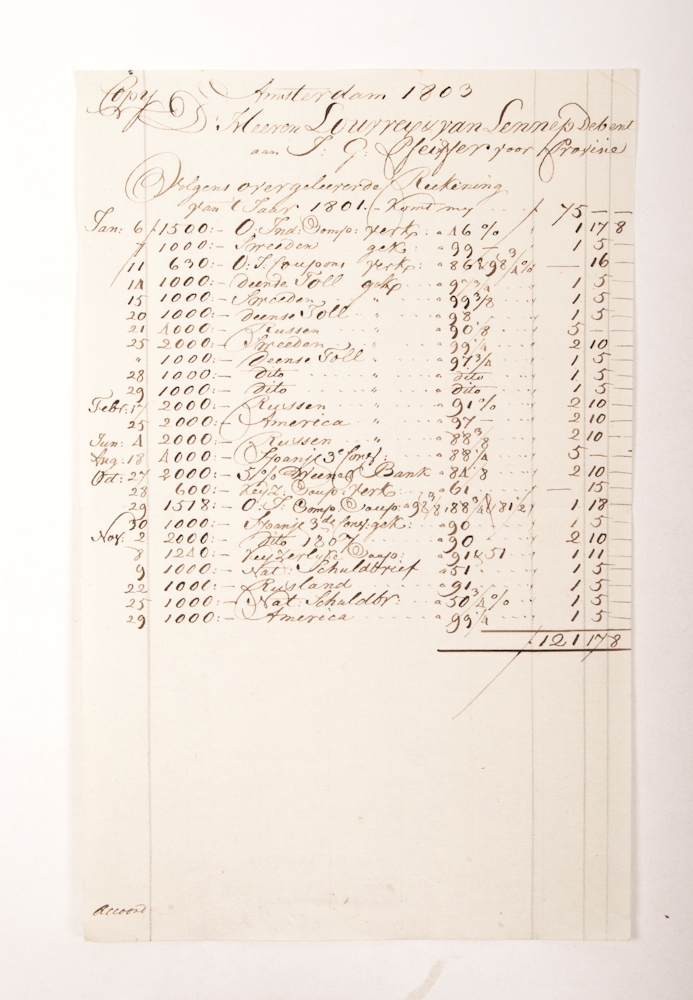 Copy Amsterdam 1803
D' Heeren Louvreys van Lennep Debent
aan J: J: Pfeiffer voor Provisie
Volgens overgeleeverde Reckening
van 't Jaar 1801 - komt my / 75 — —
Jan: 6 / 1500:- O: Ind: Comp: verk: a 46 % 1 17 8
7 1000:- Sweeden gek: a 99 — 1 5 —
11 630:- O: I: Coupons verk: a 86 & 98 3/4 % — 16
14 1000:- Deense Toll gek: a 97 3/4 1 5 —
15 1000:- Sweeden " a 99 3/8 1 5 —
20 1000:- Deense Toll " a 98 1 5 —
21 4000:- Russen " a 90 5 —
25 2000:- Sweeden " a 99 1/4 2 10 —
" 1000:- Deense Toll " a 97 3/4 1 5 —
28 1000:- dito " a dito 1 5 —
29 1000:- dito " a dito 1 5 —
Febr: 17 2000:- Russen " a 91 % 2 10 —
25 2000:- America " a 97 — 2 10 —
Jun: 4 2000:- Russen " a 88 3/8 2 10 —
Aug: 18 4000:- Spanje 3e a 88 1/4 5 —
Oct: 27 2000:- 5 p% Weener Bank a 84 2 10 —
28 600:- Coup: verk: a 61 — 15
29 1518:- O: I: Comp: Coup: a 98 88 3/4 & 81 1/2 1 18
30 1000:- Spanje 3de gek: a 90 1 5
Nov: 2 2000:- dito 1807 a 90 2 10 —
8 1240:- Keyzerlyke Coup: a 91 & 51 1 11
9 1000:- Nat: Schuldbrief a 51 1 5
22 1000:- Rusland a 91 1 5
25 1000:- Nat: Schuldbr: a 50 3/4 % 1 5
29 1000:- America a 99 1/4 1 5
121 17 8
Accoord